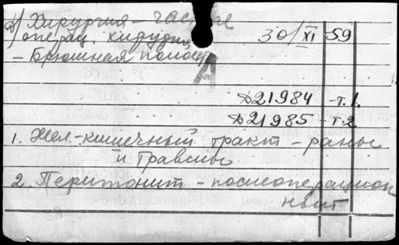 в) Хирургия – частная
операц. хирургия 30/XI 59
– Брюшная полость
А
Д21984 -т.1.
Д21985 -т.2
1. Жел-кишечный тракт – раны
и травмы
2. Перитонит – послеоперацион
ный